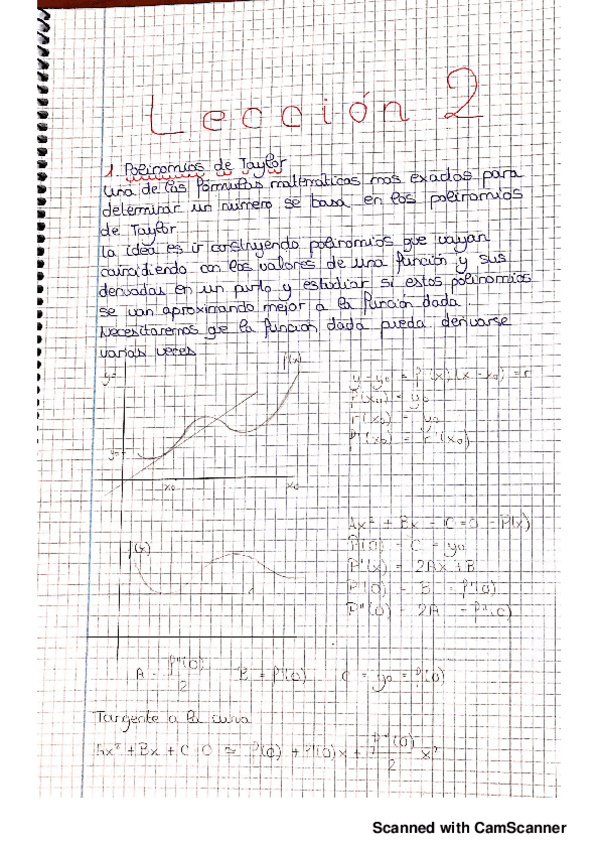 Lección 2
1. Polinomios de Taylor
Una de las fórmulas matemáticas mas exactas para
determinar un número se basa en los polinomios
de Taylor
La idea es ir construyendo polinomios que vayan
coincidiendo con los valores de una función y sus
derivadas en un punto y estudiar si estos polinomios
se van aproximando mejor a la función dada.
Necesitaremos que la función dada pueda derivarse
varias veces
f(x)
y=
y - y0 = f'(x0)(x - x0) = r
f(x0) = y0
r(x0) = y0
f'(x0) = r'(x0)
y0
x0
x0
Ax² + Bx + C = 0 = P(x)
f(x)
P(0) = C = y0
P'(x) = 2Ax + B
P'(0) = B = f'(0)
P''(0) = 2A = f''(0)
A = f''(0)/2 B = f'(0) C = y0 = f(0)
Tangente a la curva
Ax² + Bx + C = 0 = f(0) + f'(0)x + f''(0)/2 x²
Scanned with CamScanner